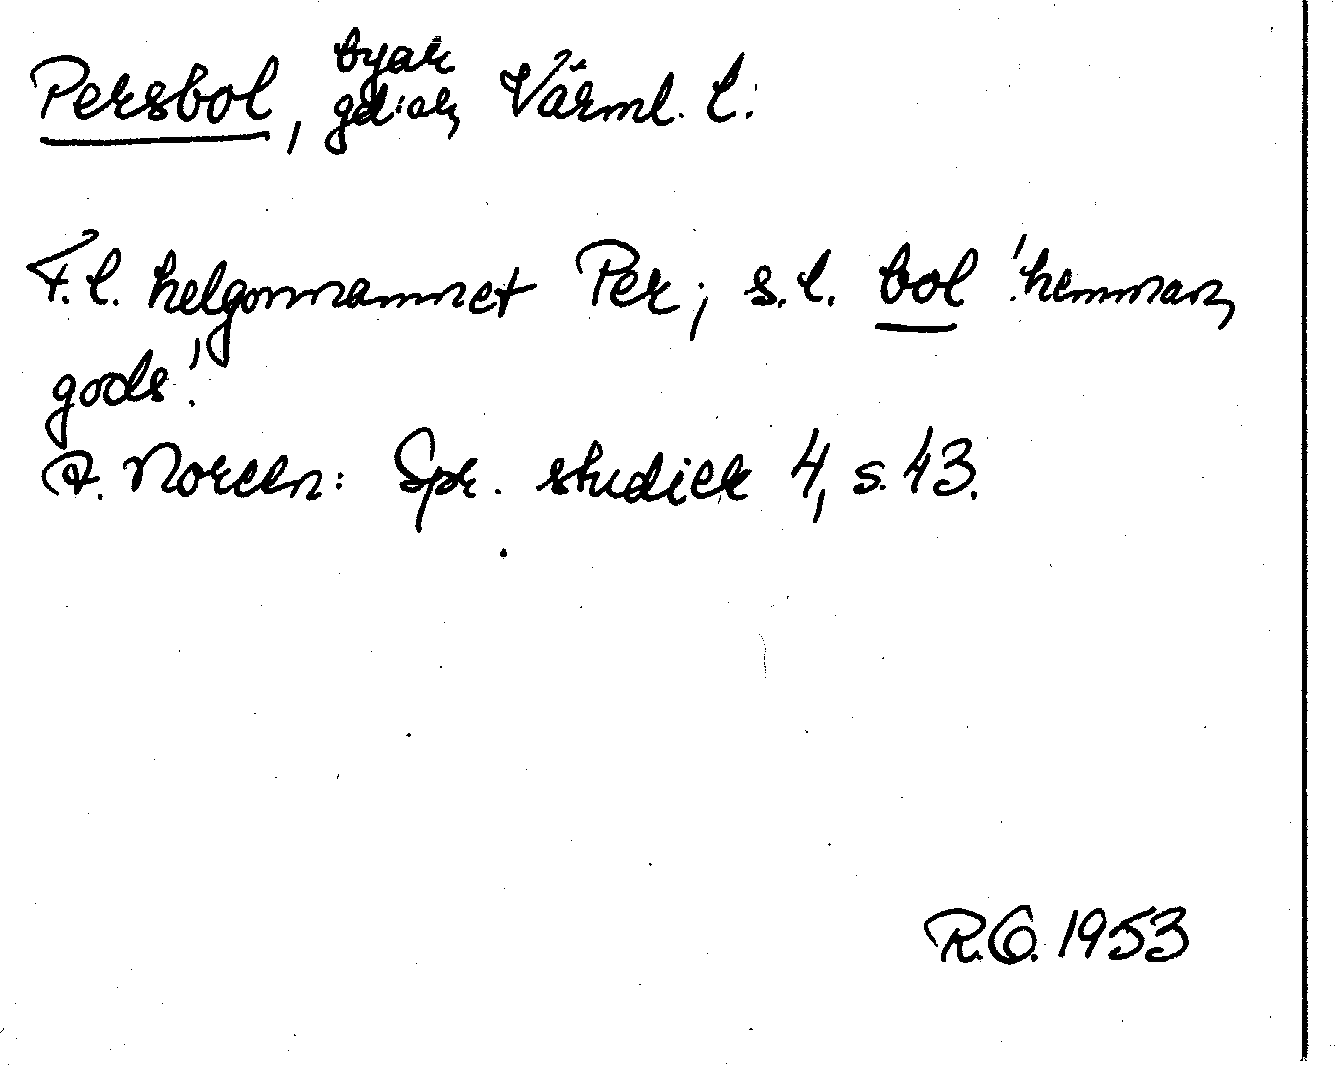 Persbol, byar gd:ar, Värml. l.
F.l. helgonnamnet Per; s.l. bol 'hemman,
gods'.
A. Noreen: Spr. studier 4, s. 43.
R.O. 1953